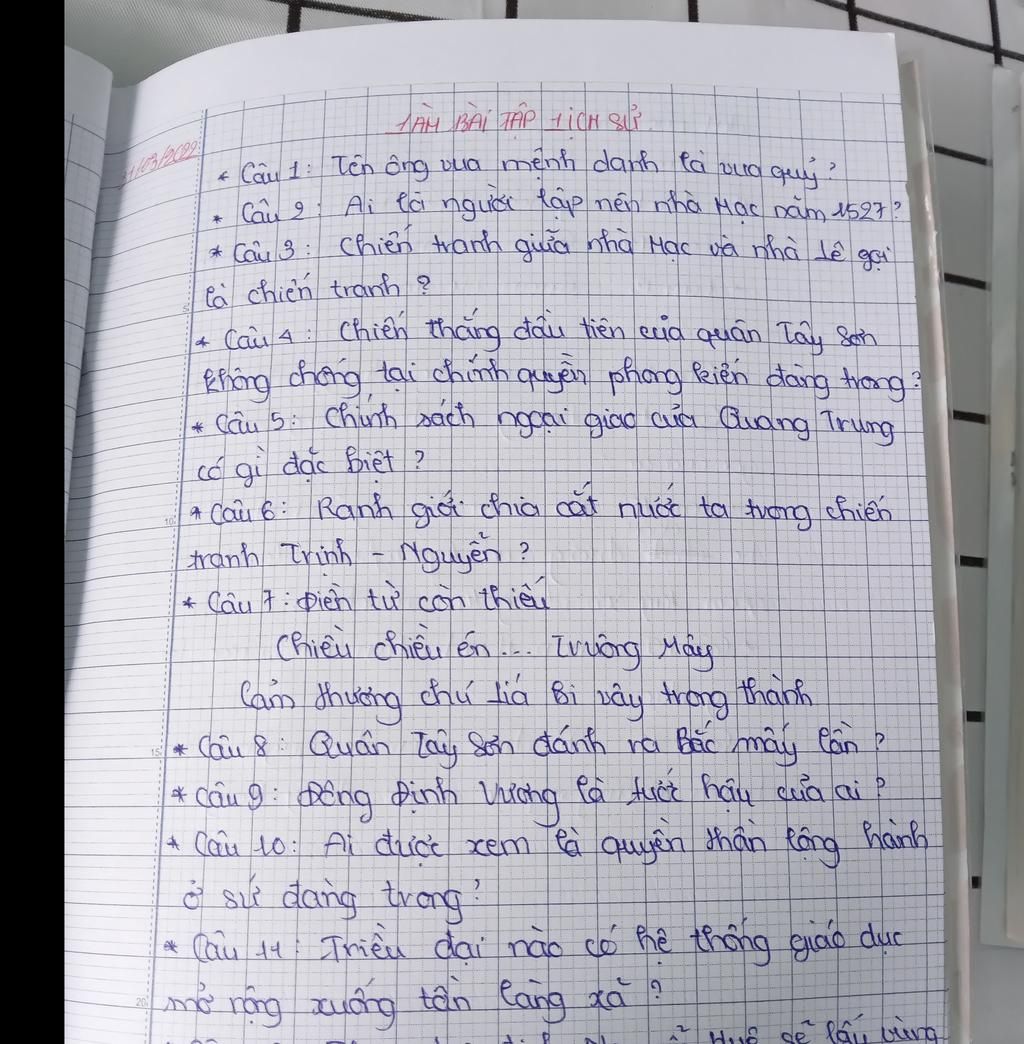 LÀM BÀI TẬP LỊCH SỬ
1/03/2022
* Câu 1: Tên ông vua mệnh danh là vua quỷ?
* Câu 2: Ai là người lập nên nhà Mạc năm 1527?
* Câu 3: Chiến tranh giữa nhà Mạc và nhà Lê gọi
là chiến tranh?
* Câu 4: Chiến thắng đầu tiên của quân Tây Sơn
không chống lại chính quyền phong kiến đàng trong?
* Câu 5: Chính sách ngoại giao của Quang Trung
có gì đặc biệt?
* Câu 6: Ranh giới chia cắt nước ta trong chiến
tranh Trịnh - Nguyễn?
* Câu 7: Điền từ còn thiếu
Chiều chiều én... Truông Mây
Cảm thương chú Lía bị vây trong thành
* Câu 8: Quân Tây Sơn đánh ra Bắc mấy lần?
* Câu 9: Đông Định Vương là tước hậu của ai?
* Câu 10: Ai được xem là quyền thần lộng hành
ở sứ đàng trong?
* Câu 11: Triều đại nào có hệ thống giáo dục
mở rộng xuống tận làng xã?
Huệ sẽ lấy vùng